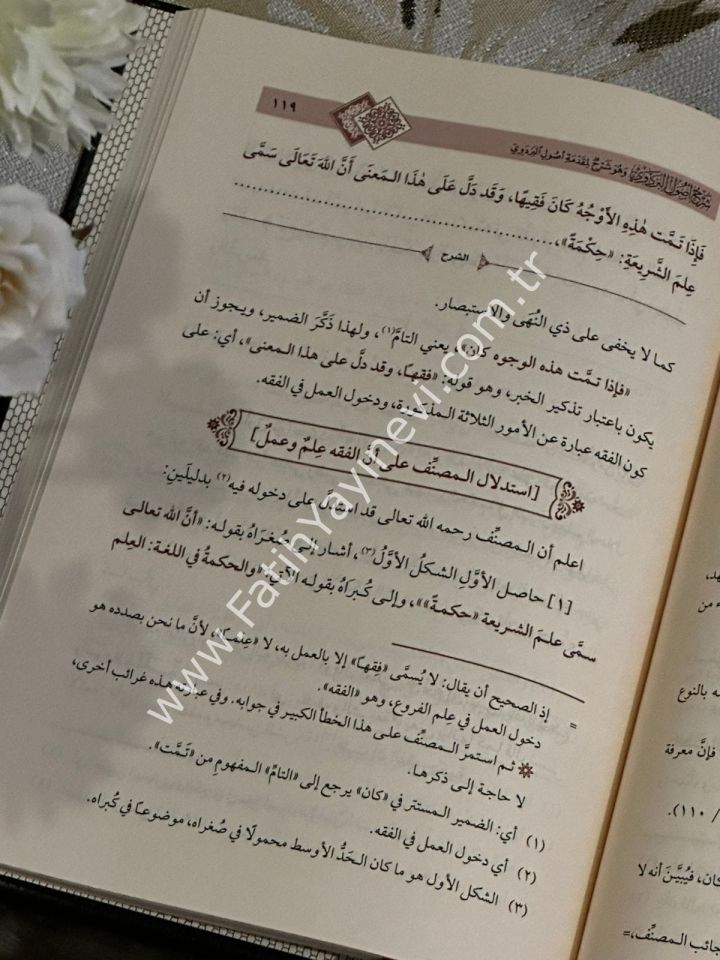 ١١٩
شرح أصول البزدوي وهو شرح لمقدمة أصول البزدوي
فَإِذَا تَمَّت هٰذِهِ الأَوْجُهُ كَانَ فَقِيهًا، وَقَد دَلَّ عَلَى هٰذَا الـمَعنَى أَنَّ اللهَ تَعَالَى سَمَّى
عِلمَ الشَّرِيعَةِ: «حِكْمَةً»،
الشرح
كما لا يخفى على ذي النُّهَى والاستبصار.
«فإذا تمَّت هذه الوجوه كان» يعني التامَّ(١)، ولهذا ذَكَّرَ الضمير، ويجوز أن
يكون باعتبار تذكير الخبر، وهو قوله: «فقيهًا، وقد دلَّ على هذا الـمعنى»، أي: على
كون الفقه عبارة عن الأمور الثلاثة الـمذكورة، ودخول العمل في الفقه.
[استدلال الـمصنِّف على أنَّ الفقه عِلمٌ وعملٌ]
اعلم أن الـمصنِّف رحمه الله تعالى قد استدلَّ على دخوله فيه(٢) بدليلَينِ:
[١] حاصل الأوَّلِ الشكلُ الأوَّلُ(٣)، أشـار إلـى صُغراهُ بقولـه: «أنَّ الله تعالـى
سمَّى علـمَ الشـريعة «حكمـةً»»، وإلـى كُـبرَاهُ بقولـه الآتي: «والحكمةُ في اللغة: العِلم
= إذ الصحيح أن يقال: لا يُسمَّى «فِقهًـا» إلا بالعمل به، لا «عِلمًـا»، لأنَّ ما نحن بصدده هو
دخول العمل في عِلم الفروع، وهو «الفقه».
ثـم استمرَّ الـمصنِّف على هـذا الخطأ الكبير في جوابه. وفي عبارته هـذه غرائب أخرى،
لا حاجة إلى ذكرهـا.
(١) أي: الضمير الـمستتر في «كان» يرجع إلى «التامِّ» الـمفهومِ من «تَمَّت».
(٢) أي دخول العمل في الفقه.
(٣) الشكل الأول هو ما كان الـحَدُّ الأوسط محمولًا في صُغراه، موضوعًـا في كُبراه.
www.FatihYayinevi.com.tr
ـه بالنوع
فإنَّ معرفة
/ ١١٠).
كان، فيُبيَّنَ أنه لا
جائب الـمصنِّف، =